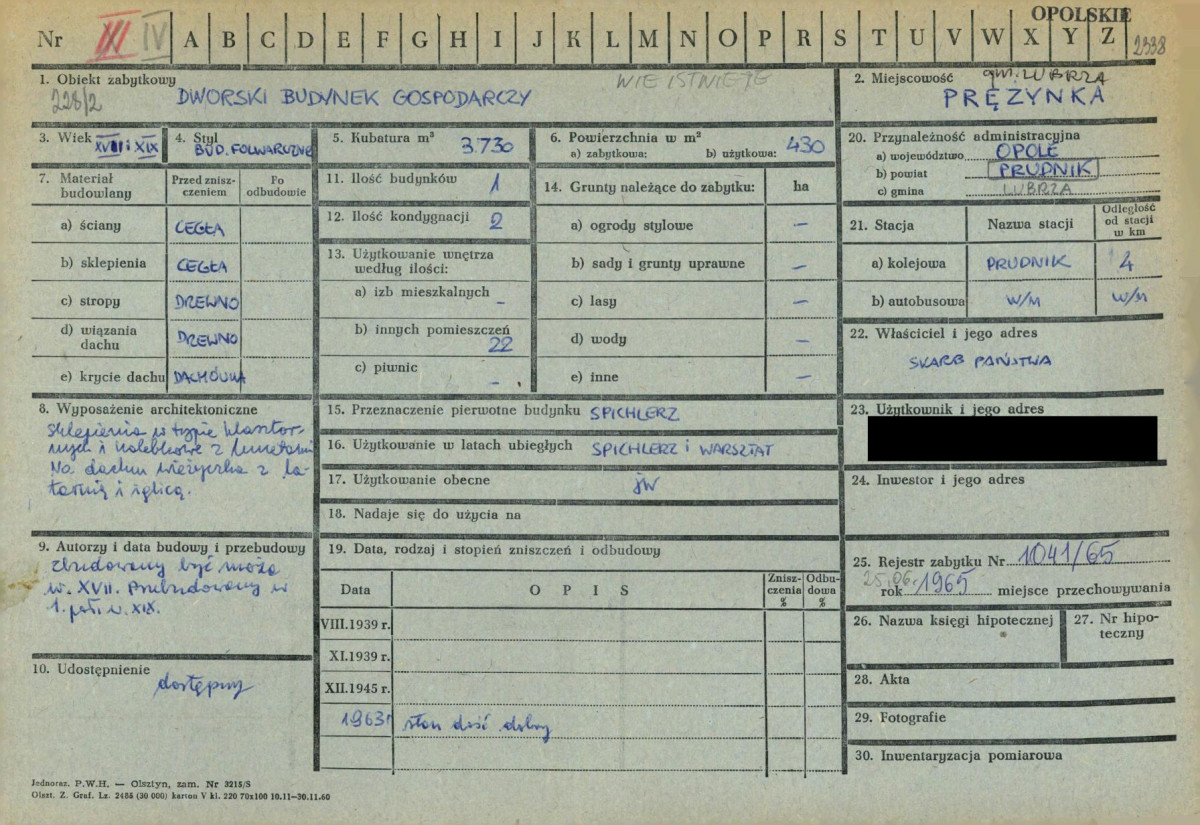 OPOLSKIE
Nr III IV A B C D E F G H I J K L M N O P R S T U V W X Y Z 2338
1. Obiekt zabytkowy
228/2
NIE ISTNIEJE
DWORSKI BUDYNEK GOSPODARCZY
2. Miejscowość gm. LUBRZA
PRĘŻYNKA
3. Wiek XVIII i XIX
4. Styl
BUD. FOLWARCZNE
5. Kubatura m³
3.730
6. Powierzchnia w m²
a) zabytkowa: b) użytkowa: 430
7. Materiał budowlany
Przed zniszczeniem
Po odbudowie
a) ściany CEGŁA
b) sklepienia CEGŁA
c) stropy DREWNO
d) wiązania dachu DREWNO
e) krycie dachu DACHÓWKA
8. Wyposażenie architektoniczne
Sklepienia w typie klasztor-
nych i kolebkowe z lunetami
Na dachu wieżyczka z la-
tarnią i iglicą.
9. Autorzy i data budowy i przebudowy
Zbudowany być może
w. XVII. Przebudowany w
1. poł. w. XIX.
10. Udostępnienie
dostępny
11. Ilość budynków 1
12. Ilość kondygnacji 2
13. Użytkowanie wnętrza
według ilości:
a) izb mieszkalnych –
b) innych pomieszczeń
22
c) piwnic –
14. Grunty należące do zabytku: ha
a) ogrody stylowe –
b) sady i grunty uprawne –
c) lasy –
d) wody –
e) inne –
15. Przeznaczenie pierwotne budynku SPICHLERZ
16. Użytkowanie w latach ubiegłych SPICHLERZ i WARSZTAT
17. Użytkowanie obecne jw
18. Nadaje się do użycia na
19. Data, rodzaj i stopień zniszczeń i odbudowy
Data OPIS Zniszczenia % Odbudowa %
VIII.1939 r.
XI.1939 r.
XII.1945 r.
1963 r stan dość dobry
20. Przynależność administracyjna
a) województwo OPOLE
b) powiat PRUDNIK
c) gmina LUBRZA
21. Stacja Nazwa stacji Odległość od stacji w km
a) kolejowa PRUDNIK 4
b) autobusowa W/M W/M
22. Właściciel i jego adres
SKARB PAŃSTWA
23. Użytkownik i jego adres
24. Inwestor i jego adres
25. Rejestr zabytku Nr 1041/65
25.06. rok 1965 miejsce przechowywania
26. Nazwa księgi hipotecznej
27. Nr hipo-
teczny
28. Akta
29. Fotografie
30. Inwentaryzacja pomiarowa
Jednoraz. P.W.H. — Olsztyn, zam. Nr 3215/S
Olszt. Z. Graf. Lz. 2455 (30 000) karton V kl. 220 70x100 10.11—30.11.60